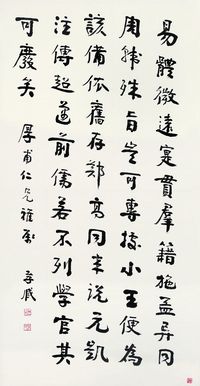 易體微遠寔貫羣籍施孟異同
周韓殊旨豈可專據小王便為
該備依舊存鄭高同來說元凱
注傳超邁前儒若不列學官其
可廢矣
厚甫仁兄雅屬 孝臧